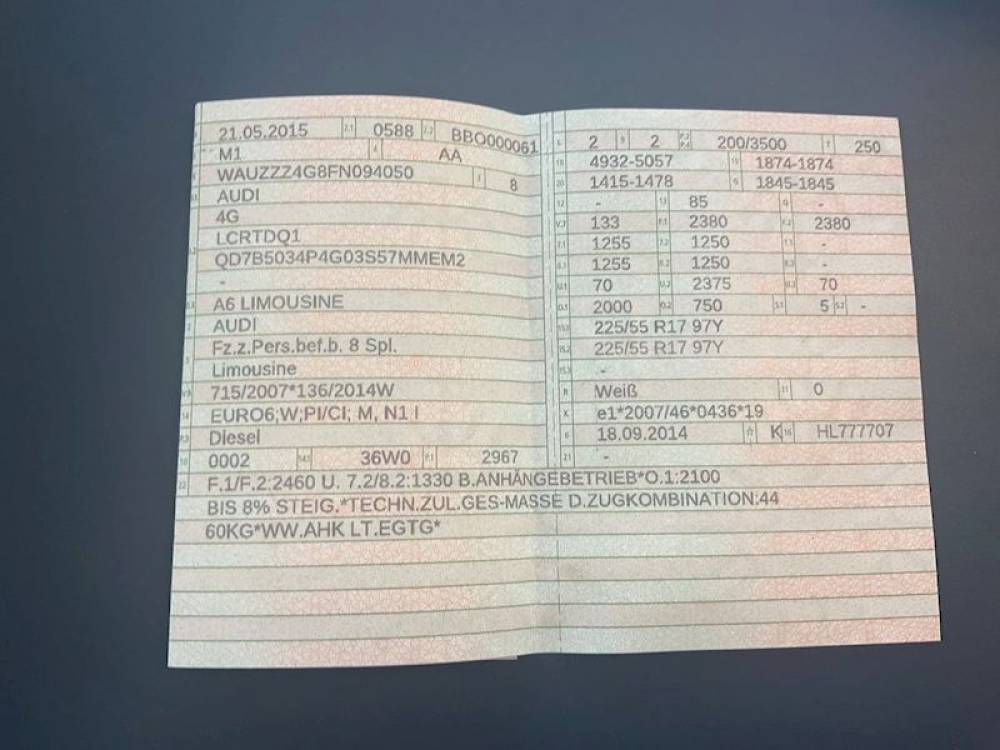 21.05.2015 2.1 0588 2.2 BBO000061
M1 AA
WAUZZZ4G8FN094050 8
AUDI
4G
LCRTDQ1
QD7B5034P4G03S57MMEM2
-
A6 LIMOUSINE
AUDI
Fz.z.Pers.bef.b. 8 Spl.
Limousine
715/2007*136/2014W
EURO6;W;PI/CI; M, N1 I
Diesel
0002 36W0 P.1 2967
2 9 2 200/3500 T 250
4932-5057 1874-1874
1415-1478 1845-1845
- 85 -
133 F.1 2380 F.2 2380
1255 1250 -
1255 1250 -
70 U.2 2375 70
2000 O.2 750 S.1 5 S.2 -
225/55 R17 97Y
225/55 R17 97Y
-
R Weiß 11 0
K e1*2007/46*0436*19
18.09.2014 K 16 HL777707
21 -
22 F.1/F.2:2460 U. 7.2/8.2:1330 B.ANHÄNGEBETRIEB*O.1:2100
BIS 8% STEIG.*TECHN.ZUL.GES-MASSE D.ZUGKOMBINATION:44
60KG*WW.AHK LT.EGTG*